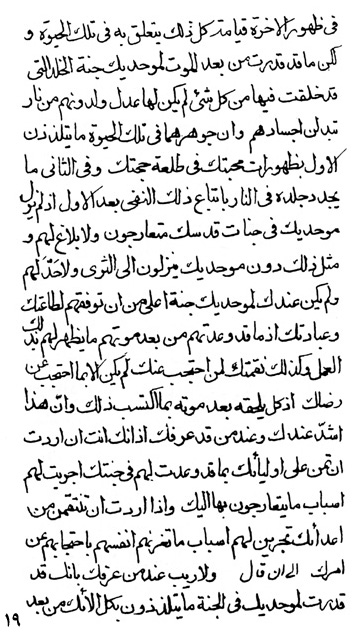 فى ظهور الاخرة قيامته كل ذلك يتعلق به فى تلك الحيوة و
لكن ما قد قدرت من بعد الموت لموحديك جنة الخلد التى
قد خلقت فيها من كل شئ لم يكن لها عدل ولدونهم من نار
تبدلن اجسادهم وان جوهر هما فى تلك الحيوة ما يتلذذن
الاول بظهورات محبتك فى طلعة حجتك وفى الثانى ما
يجدد جلده فى النار باتباع ذلك النفى بعد الاول اذ لم يزل
موحديك فى جنات قدسك متعارجون ولا بلاغ لهم و
مثل ذلك دون موحديك منزلون الى الثرى ولا حد لهم
ولم يكن عندك لموحديك جنة اعلى من ان توفقهم لطاعتك
وعبادتك اذ ما قد وعدتهم من بعد موتهم ما يظهر لهم بذلك
العمل وكذلك نقمتك لمن احتجب عنك لم يكن الا بما احتجب عن
رضائك اذ كل يلحقه بعد موته بما اكتسب ذلك وان هذا
اشد عندك وعند من قد عرفك اذ انك انت ان اردت
ان تمن على اوليائك بما قد وعدت لهم فى جنتك اجريت لهم
اسباب ما يتعارجون بها اليك واذا اردت ان تنتقمن من
اعدائك تجرين لهم اسباب ما تغرنهم انفسهم باحتجابهم عن
امرك الى ان قال ولا ريب عند من عرفك بانك قد
قدرت لموحديك فى الجنة ما يتلذذون بكل الآئك من بعد
١٩